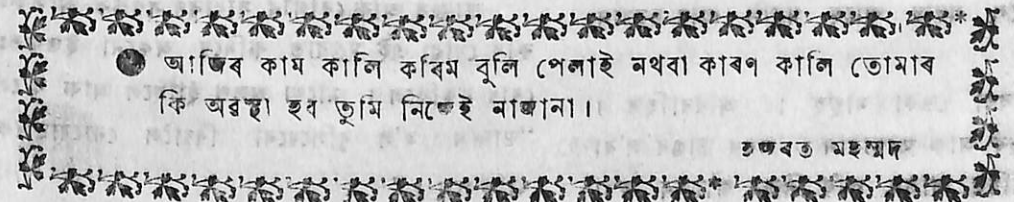 আজিৰ কাম কালি কৰিম বুলি পেলাই নথবা কাৰণ কালি তোমাৰ
কি অৱস্থা হব তুমি নিজেই নাজানা।
হজৰত মহম্মদ